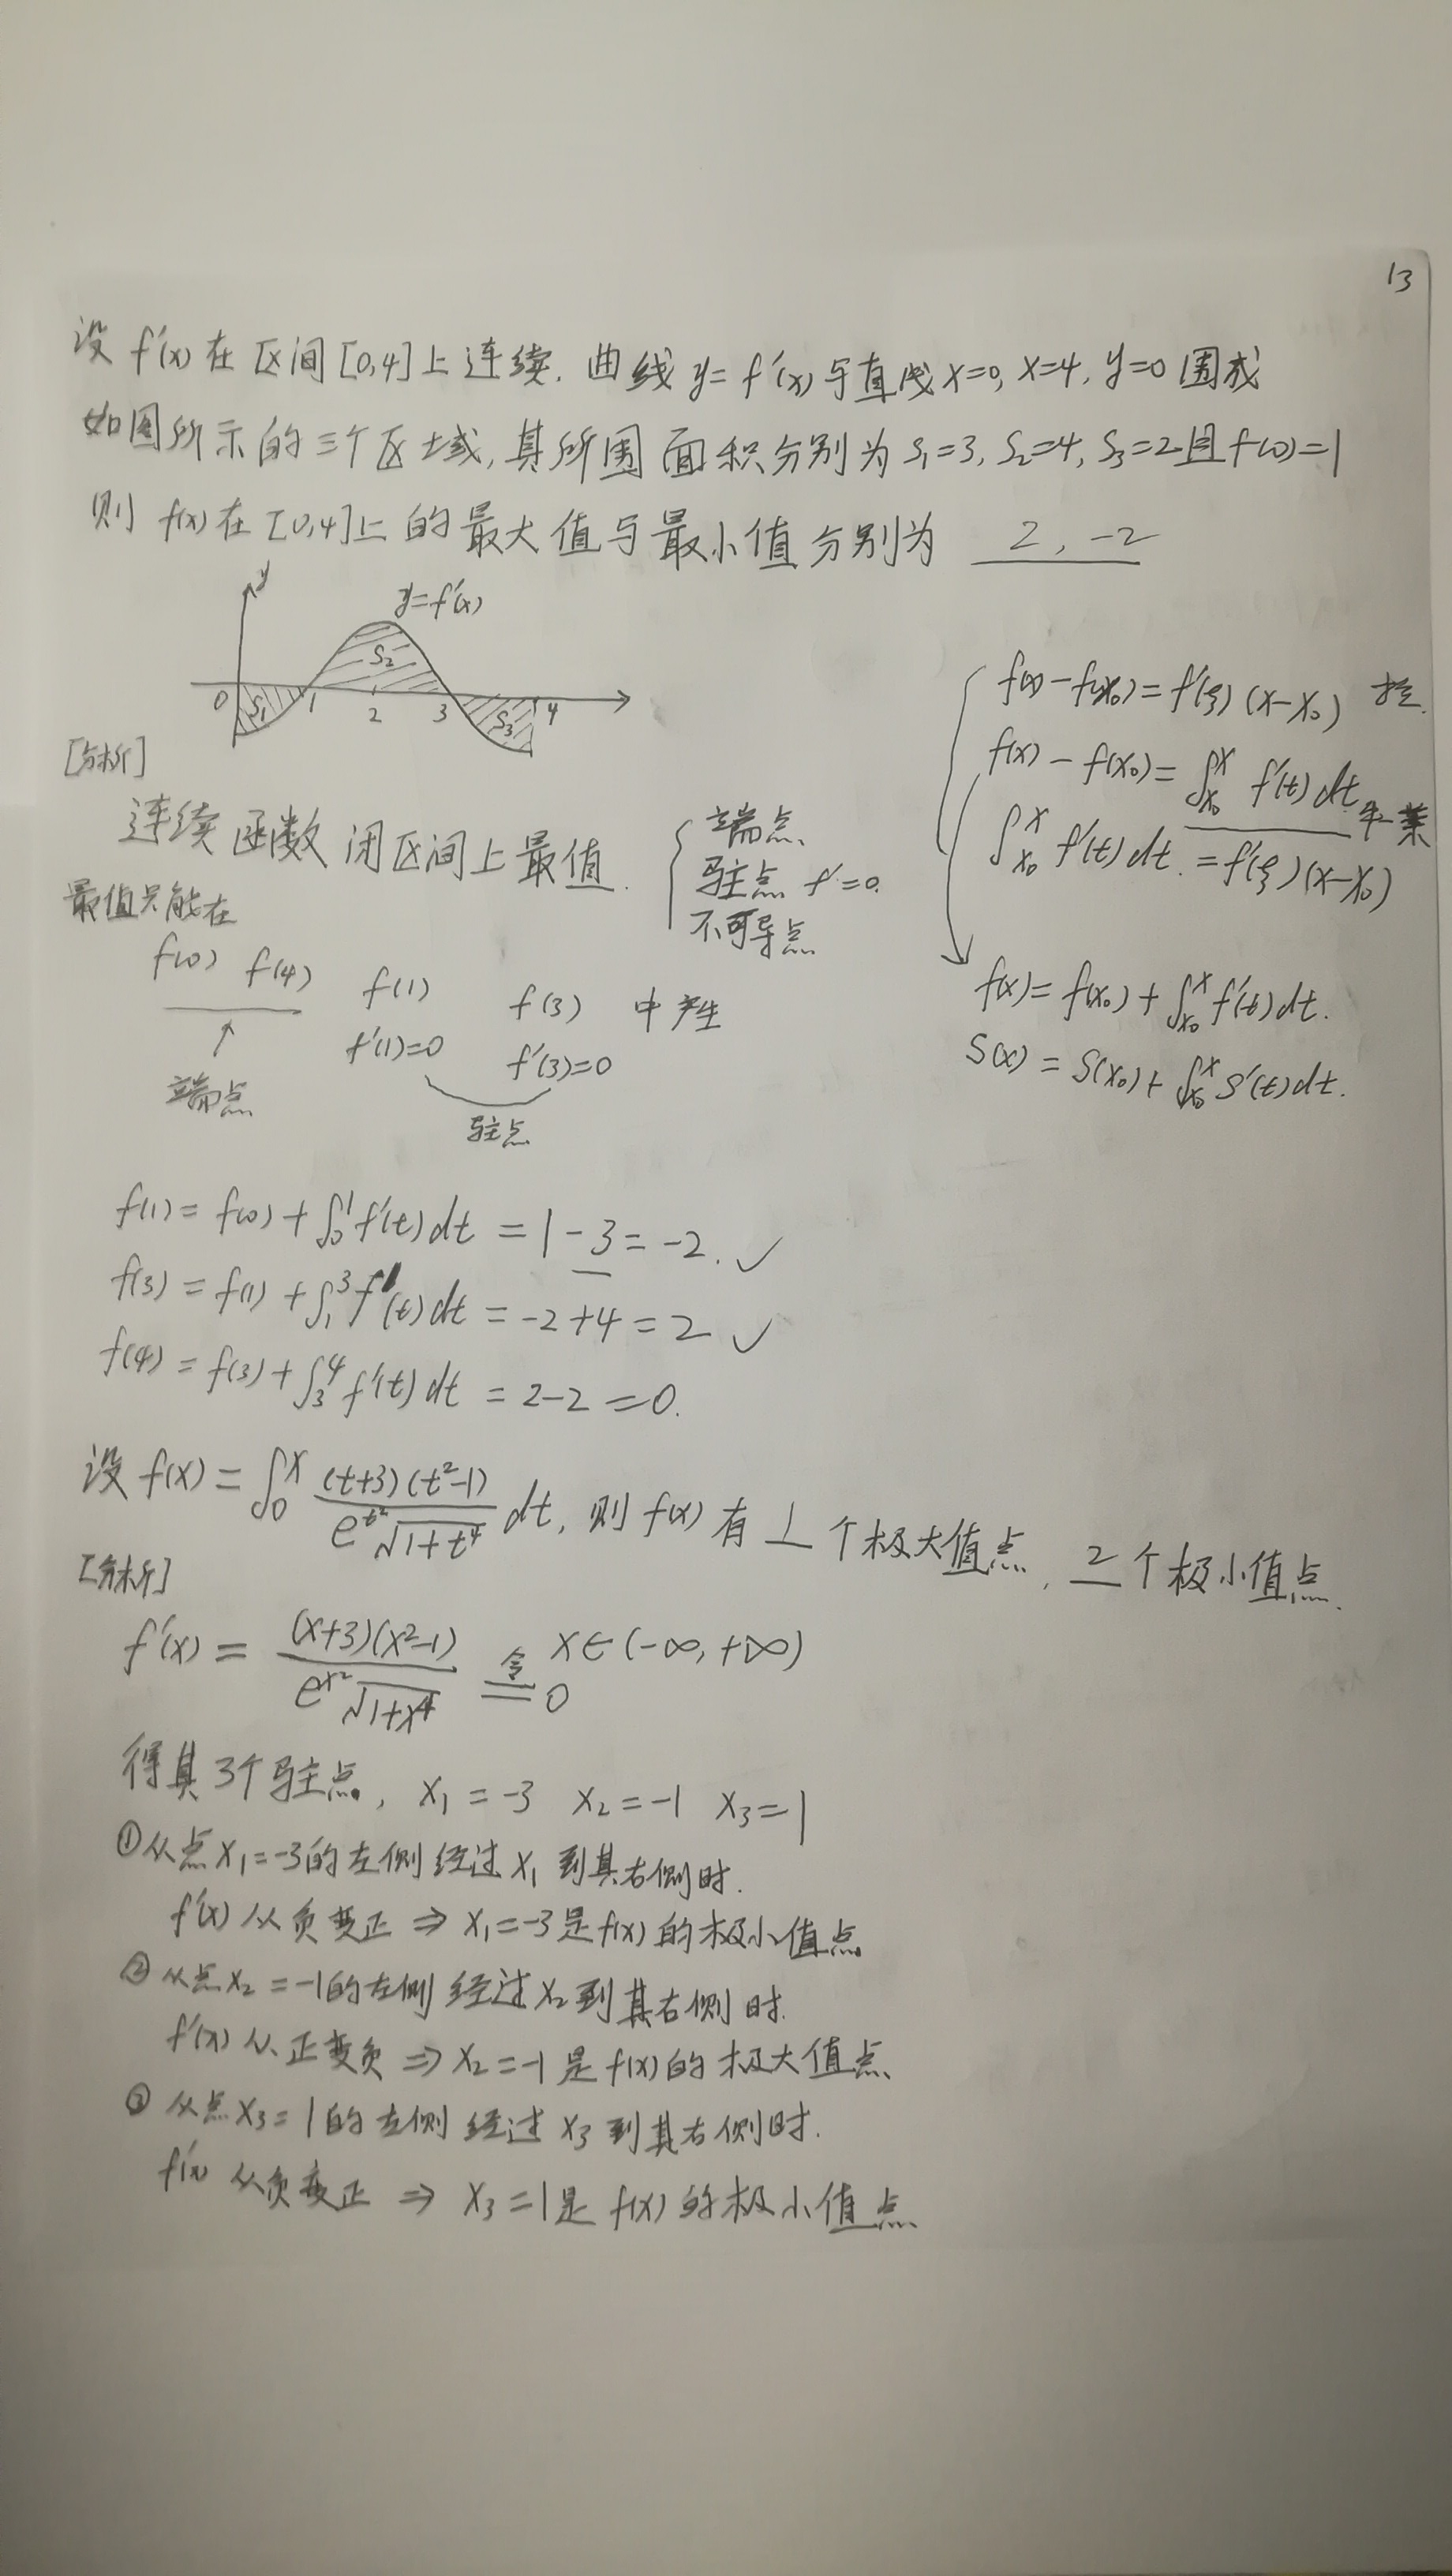 13
设 f'(x) 在区间[0,4]上连续. 曲线 y=f'(x)与直线x=0, x=4, y=0 围成
如图所示的三个区域,其所围面积分别为 S₁=3, S₂=4, S₃=2且f(0)=1
则 f(x)在[0,4]上的最大值与最小值分别为 2, -2
y
y=f'(x)
S₂
0 S₁ 1 2 3 S₃ 4
[分析]
连续函数闭区间上最值.
端点、
驻点 f'=0.
不可导点
最值只能在
f(0) f(4) f(1) f(3) 中产生
f'(1)=0 f'(3)=0
端点
驻点
f(x)-f(x₀)=f'(ξ)(x-x₀) 拉.
f(x)-f(x₀)=∫_{x₀}^{x} f'(t)dt 牛莱
∫_{x₀}^{x} f'(t)dt.=f'(ξ)(x-x₀)
f(x)=f(x₀)+∫_{x₀}^{x} f'(t)dt.
S(x)=S(x₀)+∫_{x₀}^{x} S'(t)dt.
f(1)=f(0)+∫₀¹f'(t)dt=1-3=-2. ✓
f(3)=f(1)+∫₁³f'(t)dt=-2+4=2 ✓
f(4)=f(3)+∫₃⁴f'(t)dt=2-2=0.
设 f(x)=∫₀ˣ (t+3)(t²-1)/(e^{t²}√(1+t⁴)) dt, 则 f(x) 有 1 个极大值点, 2 个极小值点.
[分析]
f'(x)=(x+3)(x²-1)/(e^{x²}√(1+x⁴)) 令= 0 x∈(-∞,+∞)
得其3个驻点, x₁=-3 x₂=-1 x₃=1
①从点x₁=-3的左侧经过x₁到其右侧时.
f'(x)从负变正⇒x₁=-3是f(x)的极小值点
②从点x₂=-1的左侧经过x₂到其右侧时.
f'(x)从正变负⇒x₂=-1是f(x)的极大值点
③从点x₃=1的左侧经过x₃到其右侧时.
f'(x)从负变正⇒x₃=1是f(x)的极小值点